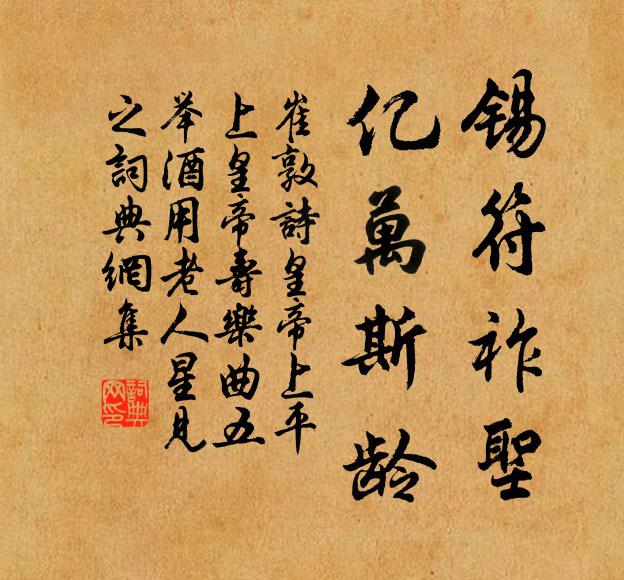 锡符祚聖
亿萬斯龄
崔敦詩皇帝上平
上皇帝壽樂曲五
举酒用老人星見
之詞典網集
詞典
网印